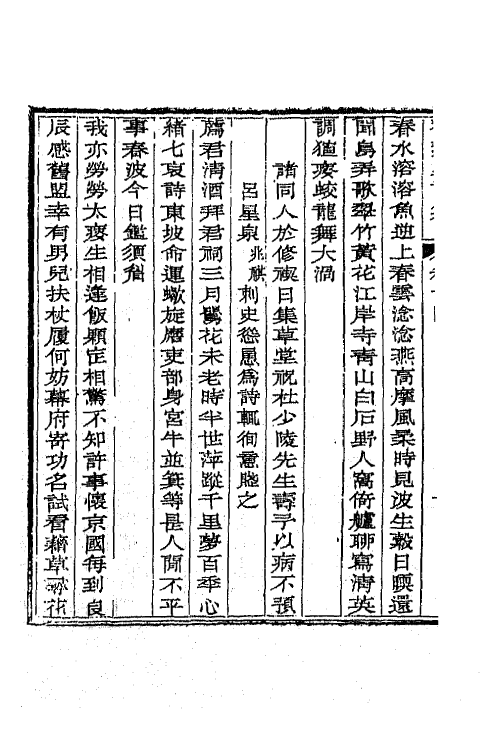 春水溶溶魚逆上春雲淰淰燕高摩風柔時見波生縠日暝還
聞鳥弄歌翠竹黃花江岸寺靑山白石野人窩倚艫聊寫淸英
調猶癭蛟龍舞大渦
諸同人於修禊日集草堂祝杜少陵先生壽予以病不預
呂星泉兆麒刺史慫慂爲詩輒徇意賤之
薦君淸酒拜君祠三月鶯花未老時半世萍蹤千里夢百年心
緖七哀詩東坡命運蠍旋磨吏部身宮牛並箕等是人間不平
事春波今日鑑須麋
我亦勞勞太瘦生相逢飯顆定相驚不知許事懷京國每到良
辰感舊盟幸有男兒扶杖履何妨幕府寄功名試看藉草尋花